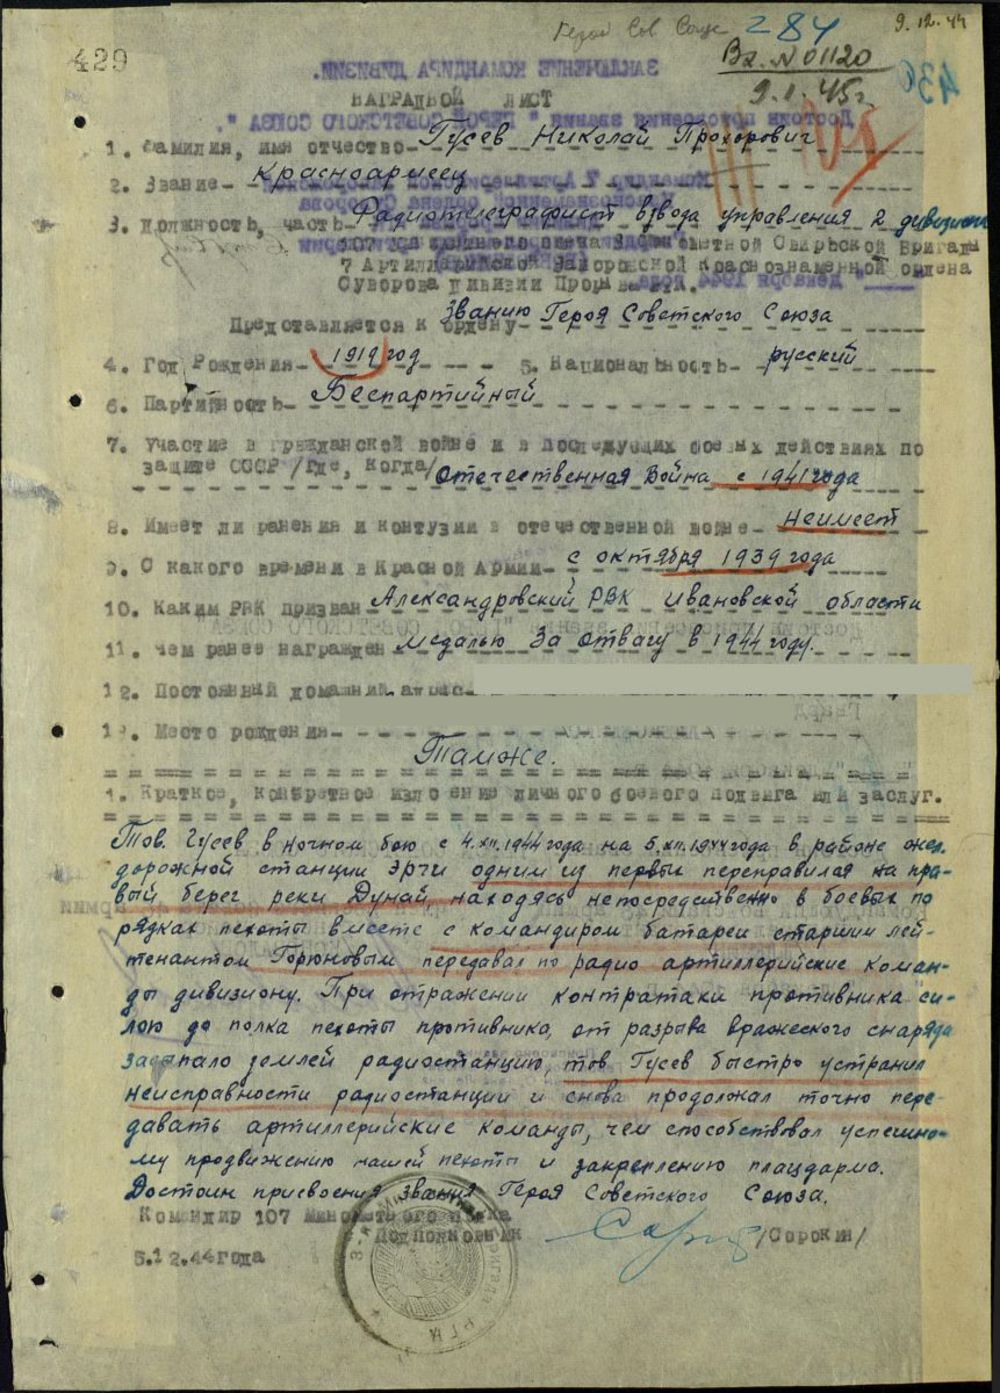 Герой Сов Союз 284 9.12.44
429 Вх. № 01120
9.1.45г.
НАГРАДНОЙ ЛИСТ
1. Фамилия, имя отчество- Гусев Николай Прохорович
2. Звание- Красноармеец
3. Должность, часть- Радиотелеграфист взвода управления 2 дивизион
107 Минометной Свирьской Бригады
7 Артиллерийской Запорожской Краснознаменной ордена
Суворова дивизии Прорыва РГК.
Представляется к ордену- званию Героя Советского Союза
4. Год Рождения- 1919 год 5. Национальность- русский
6. Партийность- Беспартийный
7. Участие в гражданской войне и в последующих боевых действиях по
защите СССР /где, когда/ Отечественная Война с 1941 года
8. Имеет ли ранения и контузии в отечественной войне- Неимеет
9. С какого времени в Красной Армии- с октября 1939 года
10. Каким РВК призван- Александровский РВК Ивановской области
11. чем ранее награжден- Медалью За отвагу в 1944 году.
12. Постоянный домашний адрес-
13. Место рождения-
Тамже.
1. Краткое, конкретное изложение личного боевого подвига или заслуг.
Тов. Гусев в ночном бою с 4.XII.1944 года на 5.XII.1944 года в районе жел.
дорожной станции Эрчи одним из первых переправился на пра-
вый берег реки Дунай, находясь непосредственно в боевых по
рядках пехоты вместе с командиром батареи старшим лей-
тенантом Горюновым передавал по радио артиллерийские коман-
ды дивизиону. При отражении контратаки противника си-
лою до полка пехоты противника, от разрыва вражеского снаряда
засыпало землей радиостанцию, тов Гусев быстро устранил
неисправности радиостанции и снова продолжал точно пере-
давать артиллерийские команды, чем способствовал успешно-
му продвижению нашей пехоты и закреплению плацдарма.
Достоин присвоения звания Героя Советского Союза.
Командир 107 Минометного полка
Подполковник /Сорокин/
5.12.44 года